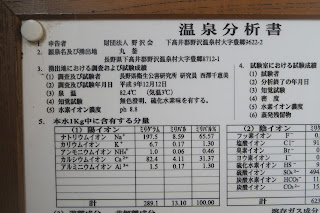 温泉分析書
1. 申告者 財団法人 野沢会 下高井郡野沢温泉村大字豊郷9622-2
2. 源泉名及び湧出地 丸釜
長野県下高井郡野沢温泉村大字豊郷8712-1
3. 湧出地における調査及び試験成績
(1) 調査及び試験者 長野県衛生公害研究所 研究員
(2) 調査及び試験年月日 平成9年12月12日
(3) 泉温 82.4℃ (気温 1℃)
(4) 知覚試験 無色澄明、硫化水素味を有する。
(5) 水素イオン濃度 ph8.8
4. 試験室における試験成績
(1) 試験者
(2) 分析終了の年月日
(3) 知覚試験
(4) 密度
(5) 水素イオン濃度
(6) 蒸発残留物
5. 本水1Kg中に含有する分量
(1) 陽イオン ミリグラム ミリバル ミリバル%
ナトリウムイオン Na 197.5 8.59 65.57
カリウムイオン K 6.7 0.17 1.30
アンモニウムイオン NH₄ 1.0 0.06 0.46
カルシウムイオン Ca 82.4 4.11 31.37
アルミニウムイオン Al 1.5 0.17 1.30
計 289.1 13.10 100.00
(2) 陰イオン ミリ
フッ素イオン F
塩素イオン Cl 91
臭素イオン Br
ヨウ素イオン I
硫化水素イオン HS
硫酸イオン SO₄ 494
炭酸水素イオン HCO₃ 11
炭酸イオン CO₃ 15
計 62